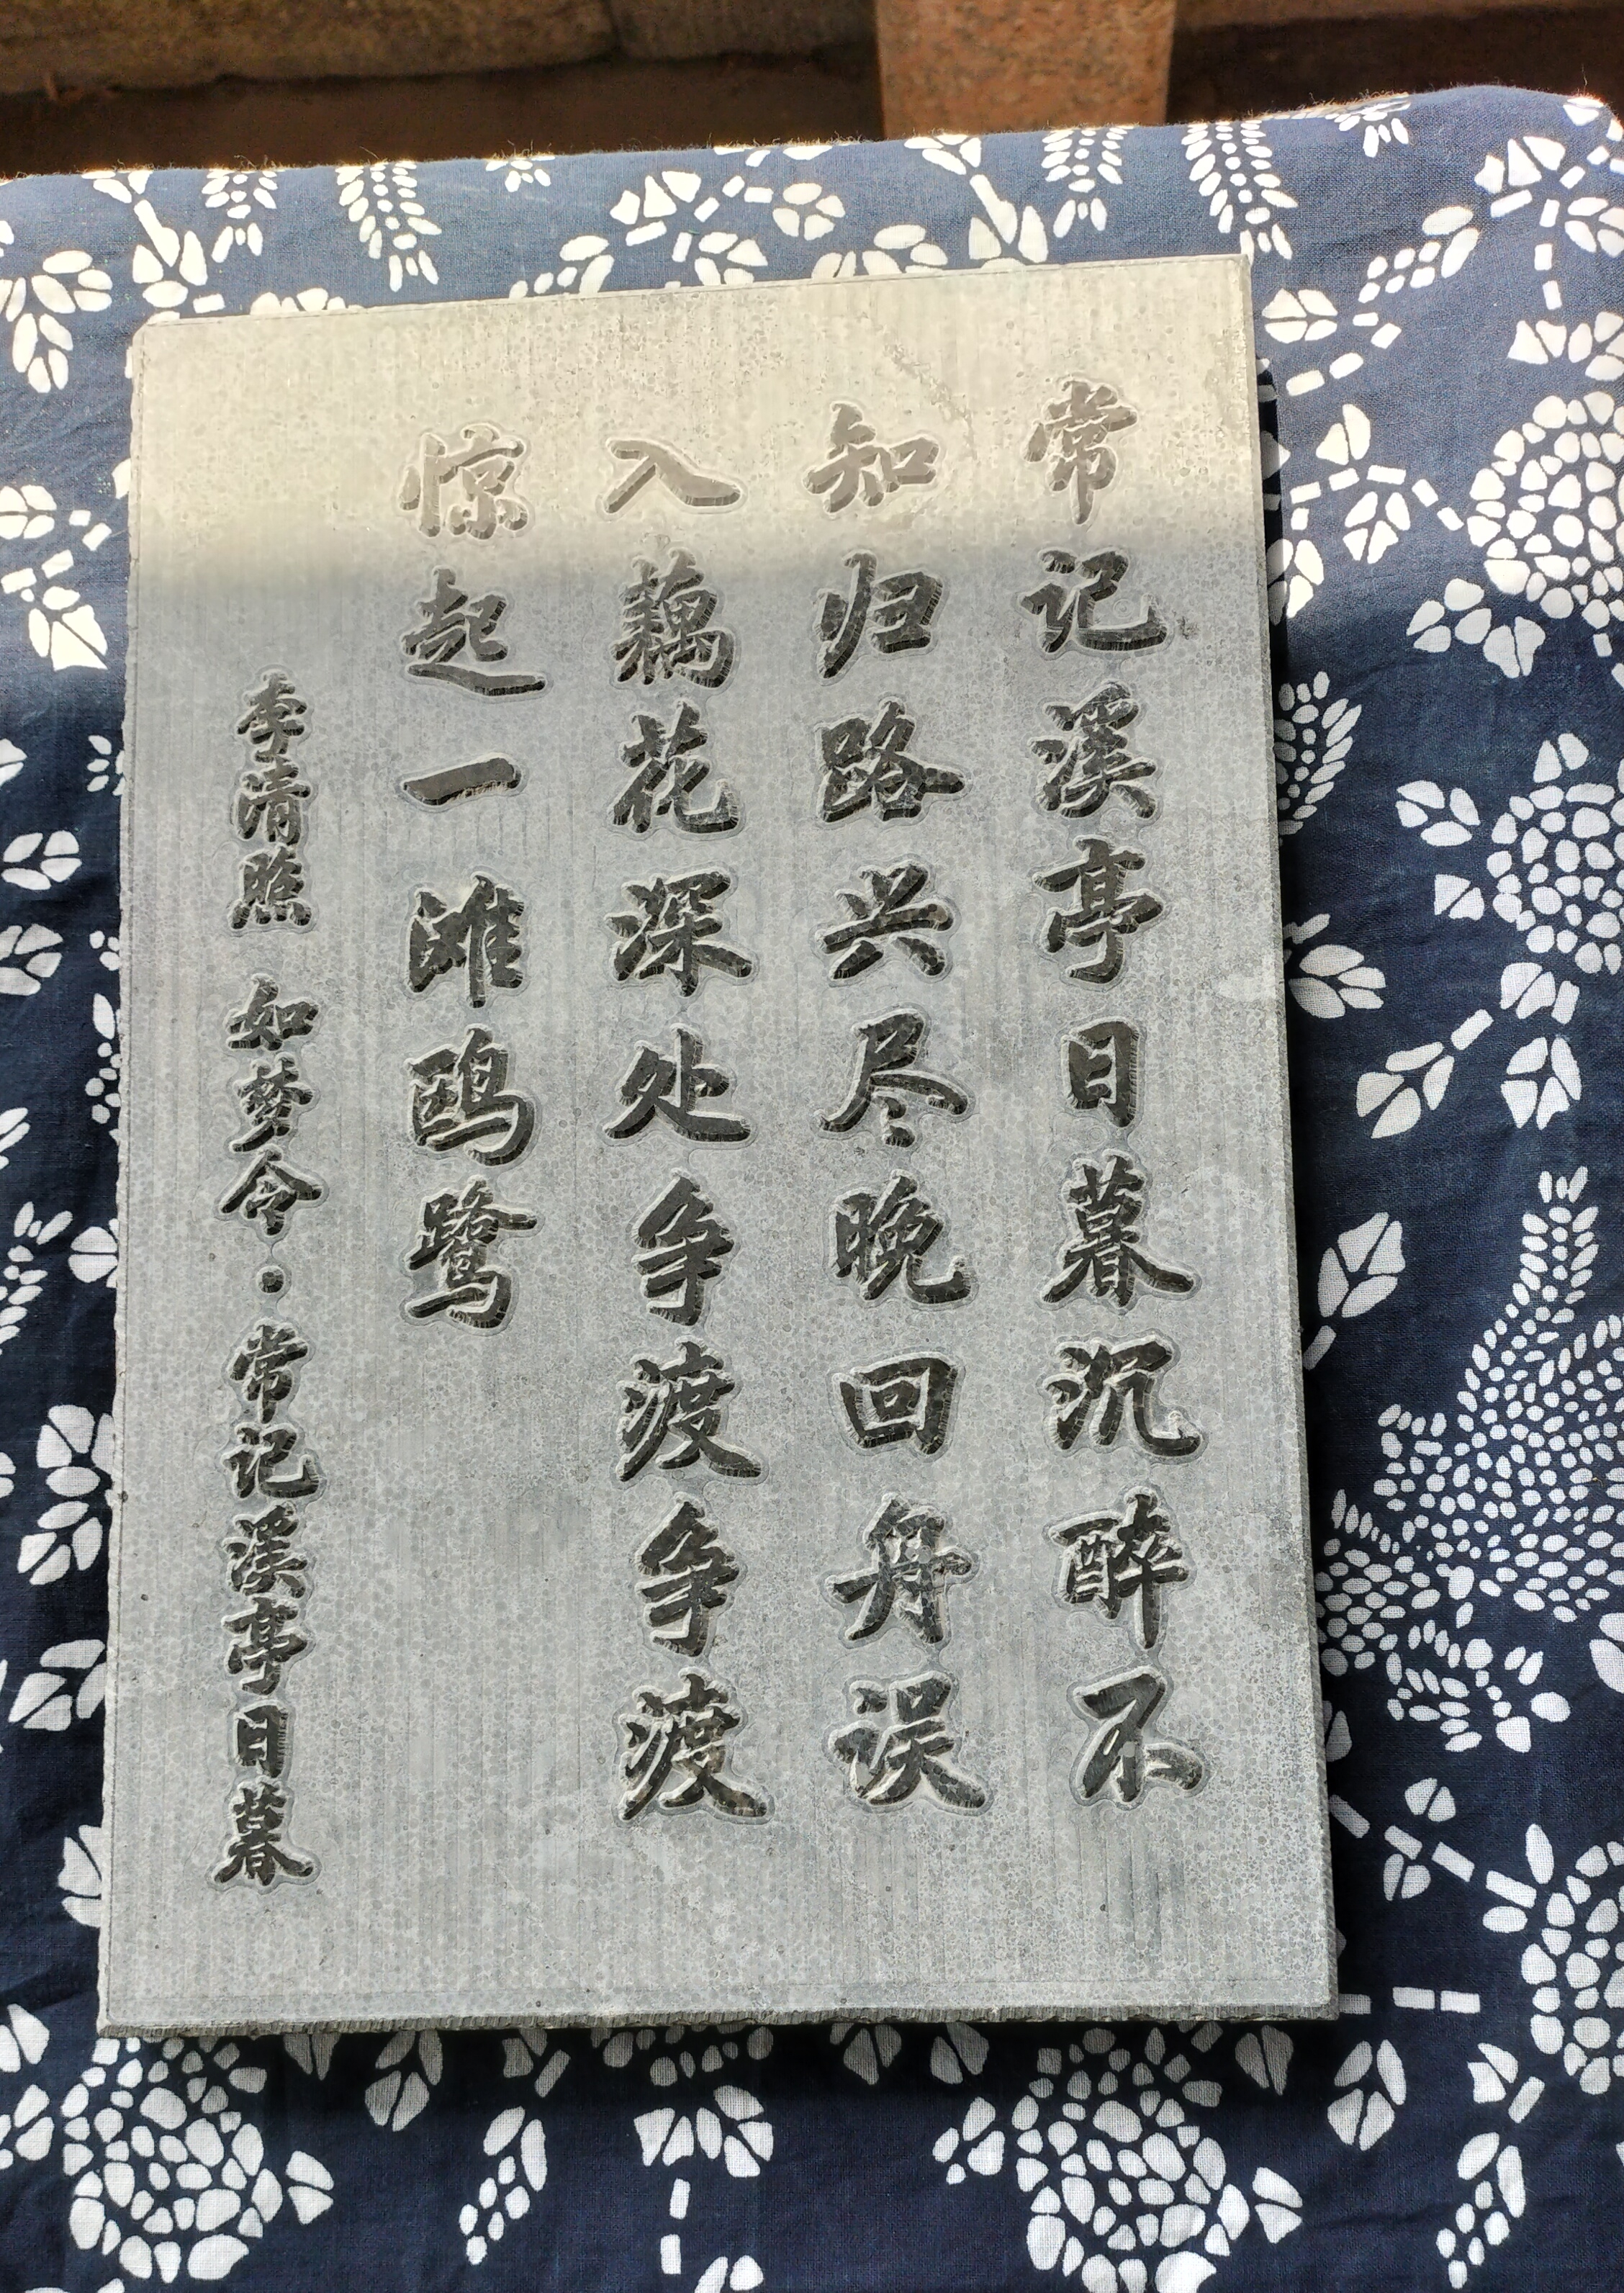 常记溪亭日暮沉醉不
知归路兴尽晚回舟误
入藕花深处争渡争渡
惊起一滩鸥鹭
李清照 如梦令·常记溪亭日暮